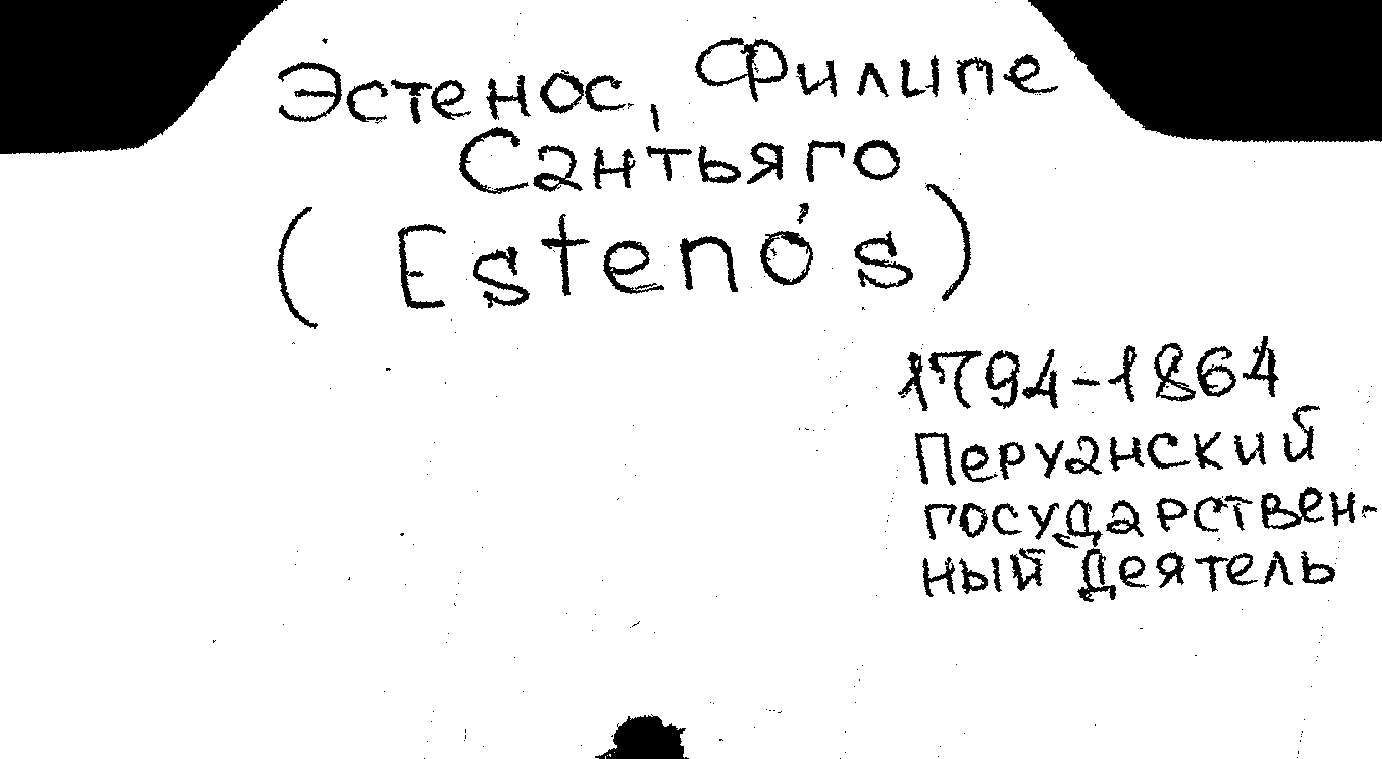 Эстенос, Филипе
Сантьяго
(Estenós)
1794-1864
Перуанский
государствен-
ный деятель